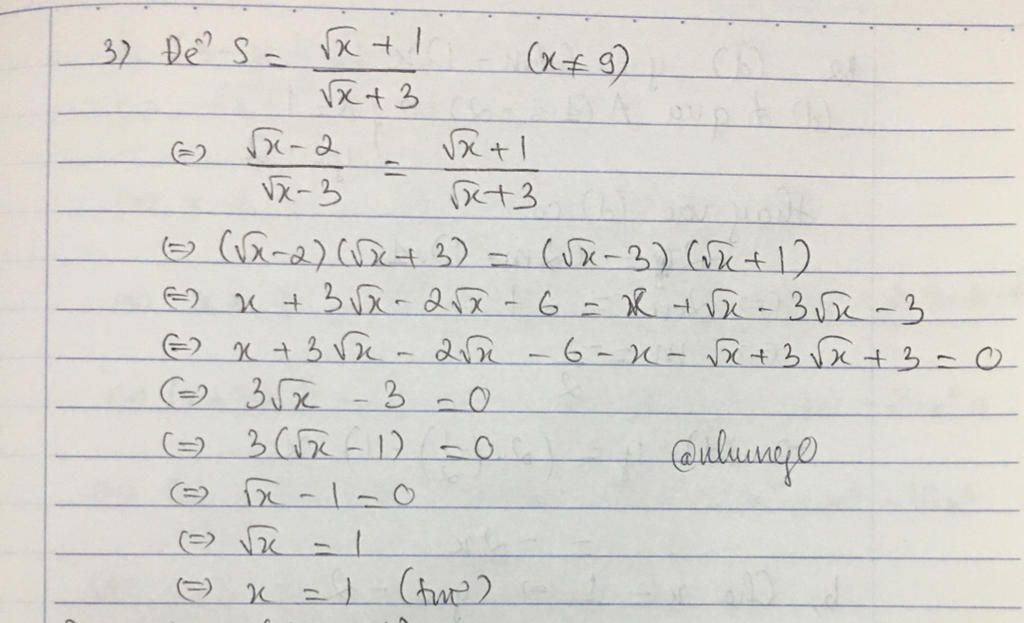 3) Để S = (√x + 1)/(√x + 3) (x ≠ 9)
(=) (√x - 2)/(√x - 3) = (√x + 1)/(√x + 3)
(=) (√x - 2)(√x + 3) = (√x - 3)(√x + 1)
(=) x + 3√x - 2√x - 6 = x + √x - 3√x - 3
(=) x + 3√x - 2√x - 6 - x - √x + 3√x + 3 = 0
(=) 3√x - 3 = 0
(=) 3(√x - 1) = 0
(=) √x - 1 = 0
(=) √x = 1
(=) x = 1